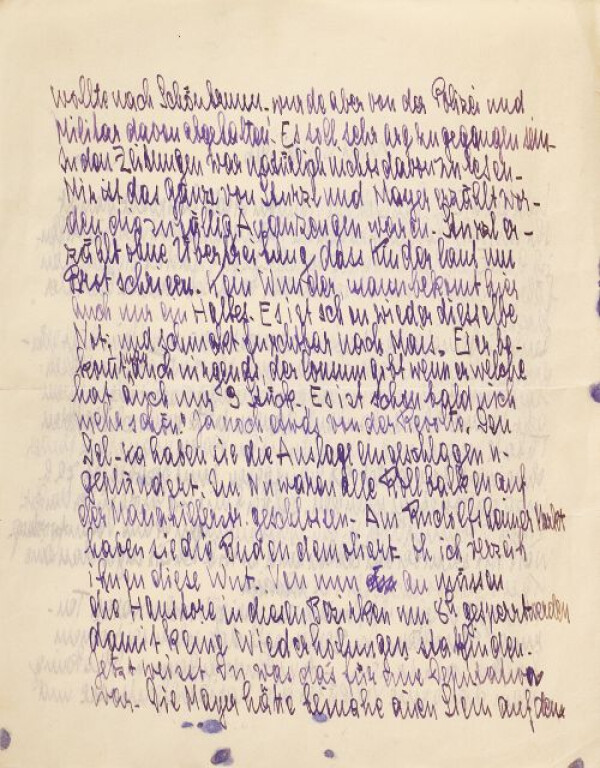 wollte nach Schönbrunn- wurde aber von der Polizei und
Militär davon abgehalten. Es soll sehr arg zugegangen sein-
In den Zeitungen war natürlich nichts davon zu lesen-
Mir ist das Ganze von Stenzl und Mayer erzählt wor-
den die zufällig Augenzeugen waren. Stenzl er-
zählt ohne Übertreibung, dass Kinder laut um
Brot schrieen. Kein Wunder, mann bekomt hier
auch nur ein Halbes. Es ist schon wieder diesselbe
Not, und schmeckt furchtbar nach Mais.
auch nirgends der Consum gibt wenn er welche
hat auch nur 9 Stück. Es ist schon bald nich
mehr schön! Da noch Ende von der Revolte. Den
haben sie die Auslage eingeschlagen u-
geplündert. Im waren alle
der Mariahilferstr. geschlossen- Am Rudolfsheimer Markt
haben sie die Buden demoliert. Oh, ich verzeih
ihnen diese Wut. Von nun an müssen
die Haustore in diesen Bezirken um 8h gesperrt werden
damit keine Wiederholungen stattfinden.
Jetzt weisst Du was das für eine
war- Die Mayer hätte beinahe einen Stein auf den